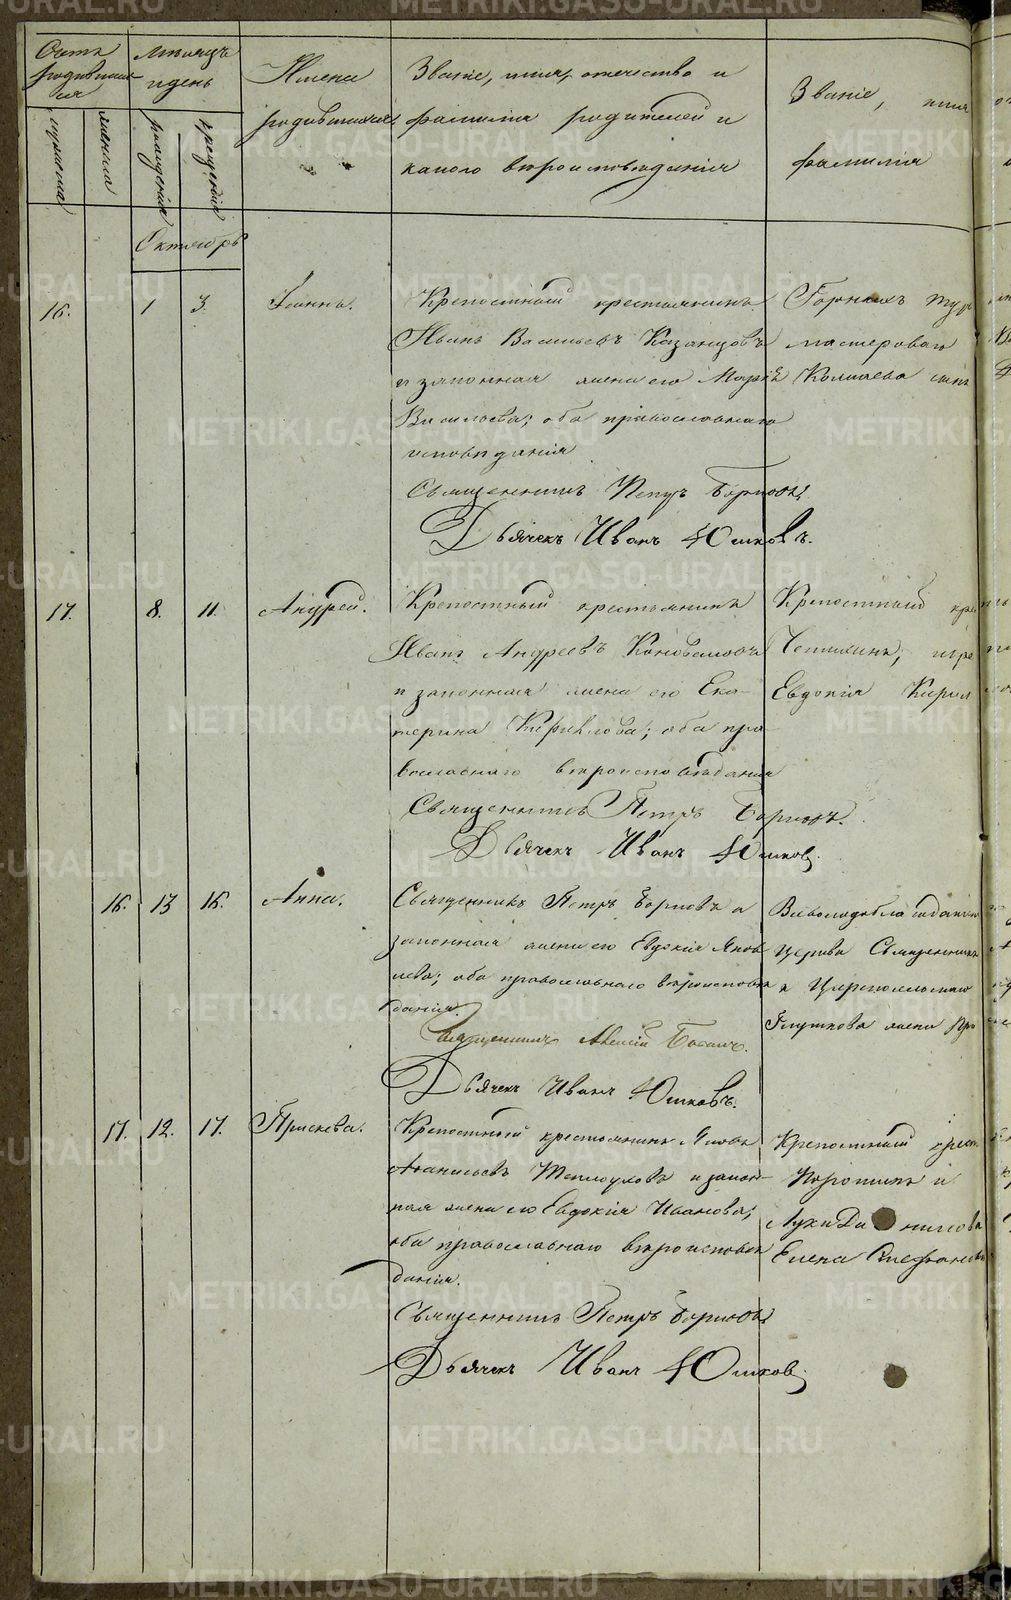 Счетъ родившихся
мужеска
женска
Мѣсяцъ и день
рожденія
крещенія
Имена
родившихся.
Званіе, имя, отечество и
фамилія родителей и
какого вѣроисповѣданія
Званіе, имя
фамилія
Октябрь
16. 1 3. Іоаннъ.
Крепостный крестьянинъ
Иванъ Васильевъ Казанцовъ
и законная жена его Марія
Васильева; оба православнаго
исповѣданія
Священникъ Петръ Борисовъ
Дьячекъ Иванъ Юшковъ.
Горныхъ
мастероваго
сынъ
17. 8. 11. Андрей.
Крепостный крестьянинъ
Иванъ Андреевъ Коноваловъ
и законная жена его Ека-
терина Кирилова; оба пра-
вославнаго вѣроисповѣданія
Священникъ Петръ Борисовъ.
Дьячекъ Иванъ Юшков
Крепостный кре
Евдокія Кирил
16. 13 16. Анна.
Священникъ Петръ Борисовъ и
законная жена его Евдокія Яков
лева; оба православнаго вѣроисповѣ
данія.
Священникъ Алексій
Дьячекъ Иванъ Юшковъ.
Церкви Священника
Глушкова жена
17. 12. 17. Прискева.
Крепостный крестьянинъ Яковъ
Афанасьевъ Теплоуховъ и закон-
ная жена его Евдокія Иванова;
оба православнаго вѣроисповѣ
данія.
Священникъ Петръ Борисовъ
Дьячекъ Иванъ Юшков
Крепостный крест
и
Луки Денисова
Елена Степанова
METRIKI.GASO-URAL.RU